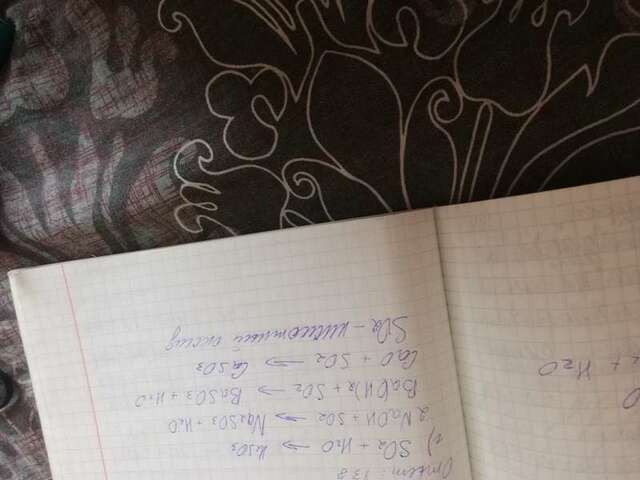 Ответ: 138
1) SO₂ + H₂O → H₂SO₃
2NaOH + SO₂ → Na₂SO₃ + H₂O
Ba(OH)₂ + SO₂ → BaSO₃ + H₂O
CaO + SO₂ → CaSO₃
SO₂ - кислотный оксид
+ H₂O